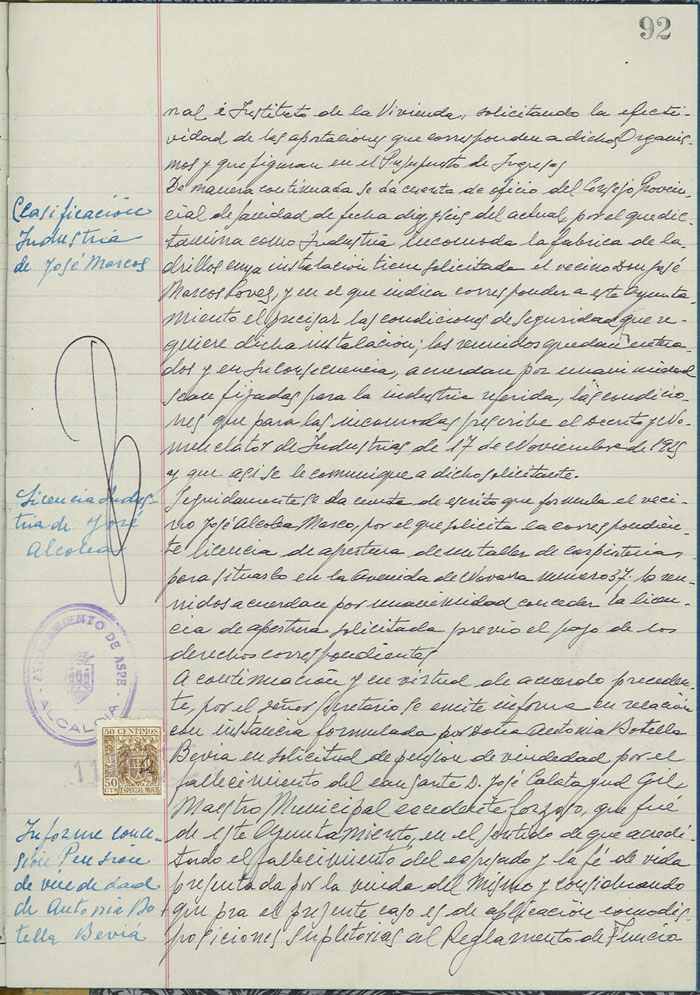 92
nal é Instituto de la Vivienda, solicitando la efecti-
vidad de las aportaciones que corresponden a dichos Organis-
mos y que figuran en el Presupuesto de Ingresos
De manera continuada se da cuenta de oficio del Consejo Provin-
cial de Sanidad de fecha diez y seis del actual, por el que dic-
tamina como Industria incomoda la fabrica de la-
drillos cuya instalación tiene solicitada el vecino Don José
Marcos, y en el que indica corresponder a este Ayunta-
miento el precisar las condiciones de seguridad que re-
quiere dicha instalación; los reunidos quedan entera-
dos y en su consecuencia, acuerdan por unanimidad
sean fijadas para la industria referida, las condicio-
nes que para las incomodas prescribe el Decreto y No-
menclator de Industrias de 17 de Noviembre de 1925
y que asi se le comunique a dicho solicitante.
Seguidamente se da cuenta de escrito que formula el veci-
no José Alcolea Marco, por el que solicita la correspondien-
te licencia de apertura de un taller de carpinteria
para situarlo en la Avenida de Navarra numero 37; los reu-
nidos acuerdan por unanimidad conceder la licen-
cia de apertura solicitada previo el pago de los
derechos correspondientes
A continuacion y en virtud de acuerdo preceden-
te, por el señor Secretario se emite informe en relación
con instancia formulada por doña Antonia Botella
Bevia en solicitud de pensión de viudedad por el
fallecimiento del causante D. José Calatayud Gil,
Maestro Municipal excedente forzoso, que fué
de este Ayuntamiento, en el sentido de que acredi-
tando el fallecimiento del expresado y la fé de vida
presentada por la viuda del mismo y considerando
que para el presente caso es de aplicación como dis-
posiciones supletorias al Reglamento de Funcio
Clasificación
Industria
de José Marcos
Licencia Indus-
tria de José
Alcolea
AYUNTAMIENTO DE ASPE
ALCALDIA
11
50 CENTIMOS
50
CTS
ESPECIAL MOVIL
Informe conce-
sión Pensión
de viudedad
de Antonia Bo-
tella Beviá